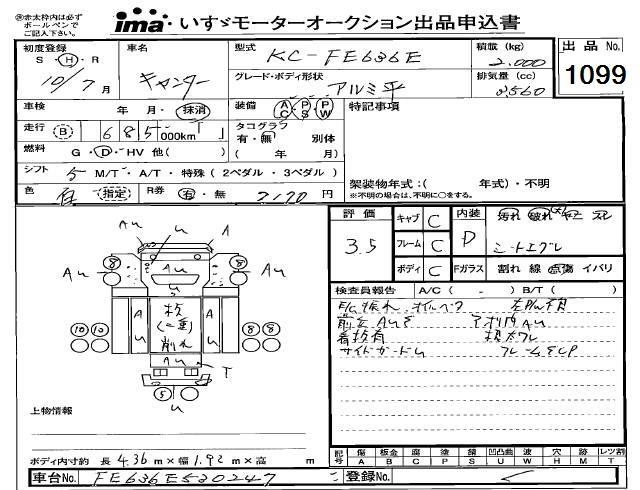 ※赤太枠内は必ず
ボールペンで
ご記入下さい。
ima いすゞモーターオークション出品申込書
初度登録 S・H・R 10年7月
車名 キャンター
型式 KC-FE636E
グレード・ボディ形状 アルミ平
積載(kg) 2,000
排気量(cc) 3,560
出品No. 1099
車検 年 月・抹消
走行 (B) 685,000km
燃料 G・D・HV 他( )
シフト 5 M/T・A/T・特殊(2ペダル・3ペダル)
色 指定 R券 有・無 円
装備 AC PS PW
タコグラフ 有・無 別体
( 年 月)
特記事項
架装物年式:( 年式)・不明
※不明の場合は、不明に○をする。
評価 3.5
キャブ C
フレーム C
ボディ C
内装 D
汚れ 破れ
シートエグレ
Fガラス 割れ 線 点傷 イバリ
検査員報告 A/C( - ) B/T( )
看板有
サイドガードム
A u A
Au 8 8 Au
Au
A A
板
(二重)
削れ
10 10 8 8
Au
T
5
u
上物情報
ボディ内寸約 長 4.36 m×幅 1.92 m×高 m
記号 傷 A 板金 B 腐 C 塗 P 錆 S 凹凸曲 U 波 W 穴 H 跡 M レツ割 T
車台No. FE636E530247
登録No.